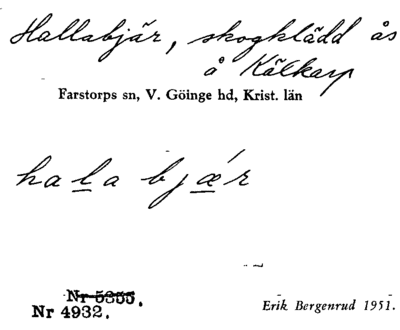 Hallabjär, skogklädd ås
å Kälkarp
Farstorps sn, V. Göinge hd, Krist. län
hala bjǽr
Nr 5355.
Nr 4932.
Erik Bergenrud 1951.